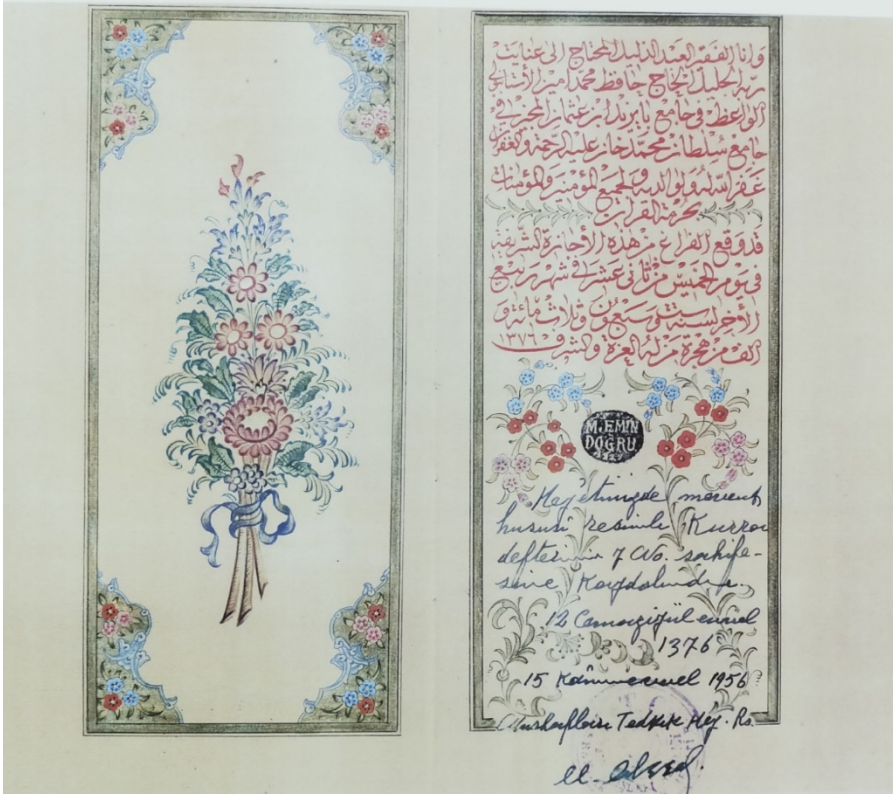 وانا الفقير العبد الذليل المحتاج الى عنايت
ربه الجليل الحاج حافظ محمد امين الأستانبولي
الواعظ في جامع بايزيد ابن عثمان المجبر في
جامع سلطان محمد خان عليه الرحمة والغفران
غفر الله له ولوالديه ولجميع المؤمنين والمؤمنات
بحرمة القرآن
قد وقع الفراغ من هذه الأجازة الشريفة
في يوم الخميس من ثاني عشر في شهر ربيع
الأخر لسنة ست وسبعون وثلاث مائة و
الف من هجرة من له العزة والشرف ١٣٧٦
M. EMİN
DOĞRU
Heyetimizde mevcut
hususi resimli Kurra
defterinin 7 No. sahife-
sine Kaydolundu.
12 Cemaziyülevvel
1376
15 Kânunuevvel 1956
Mushafları Tedkik Hey. Rs.